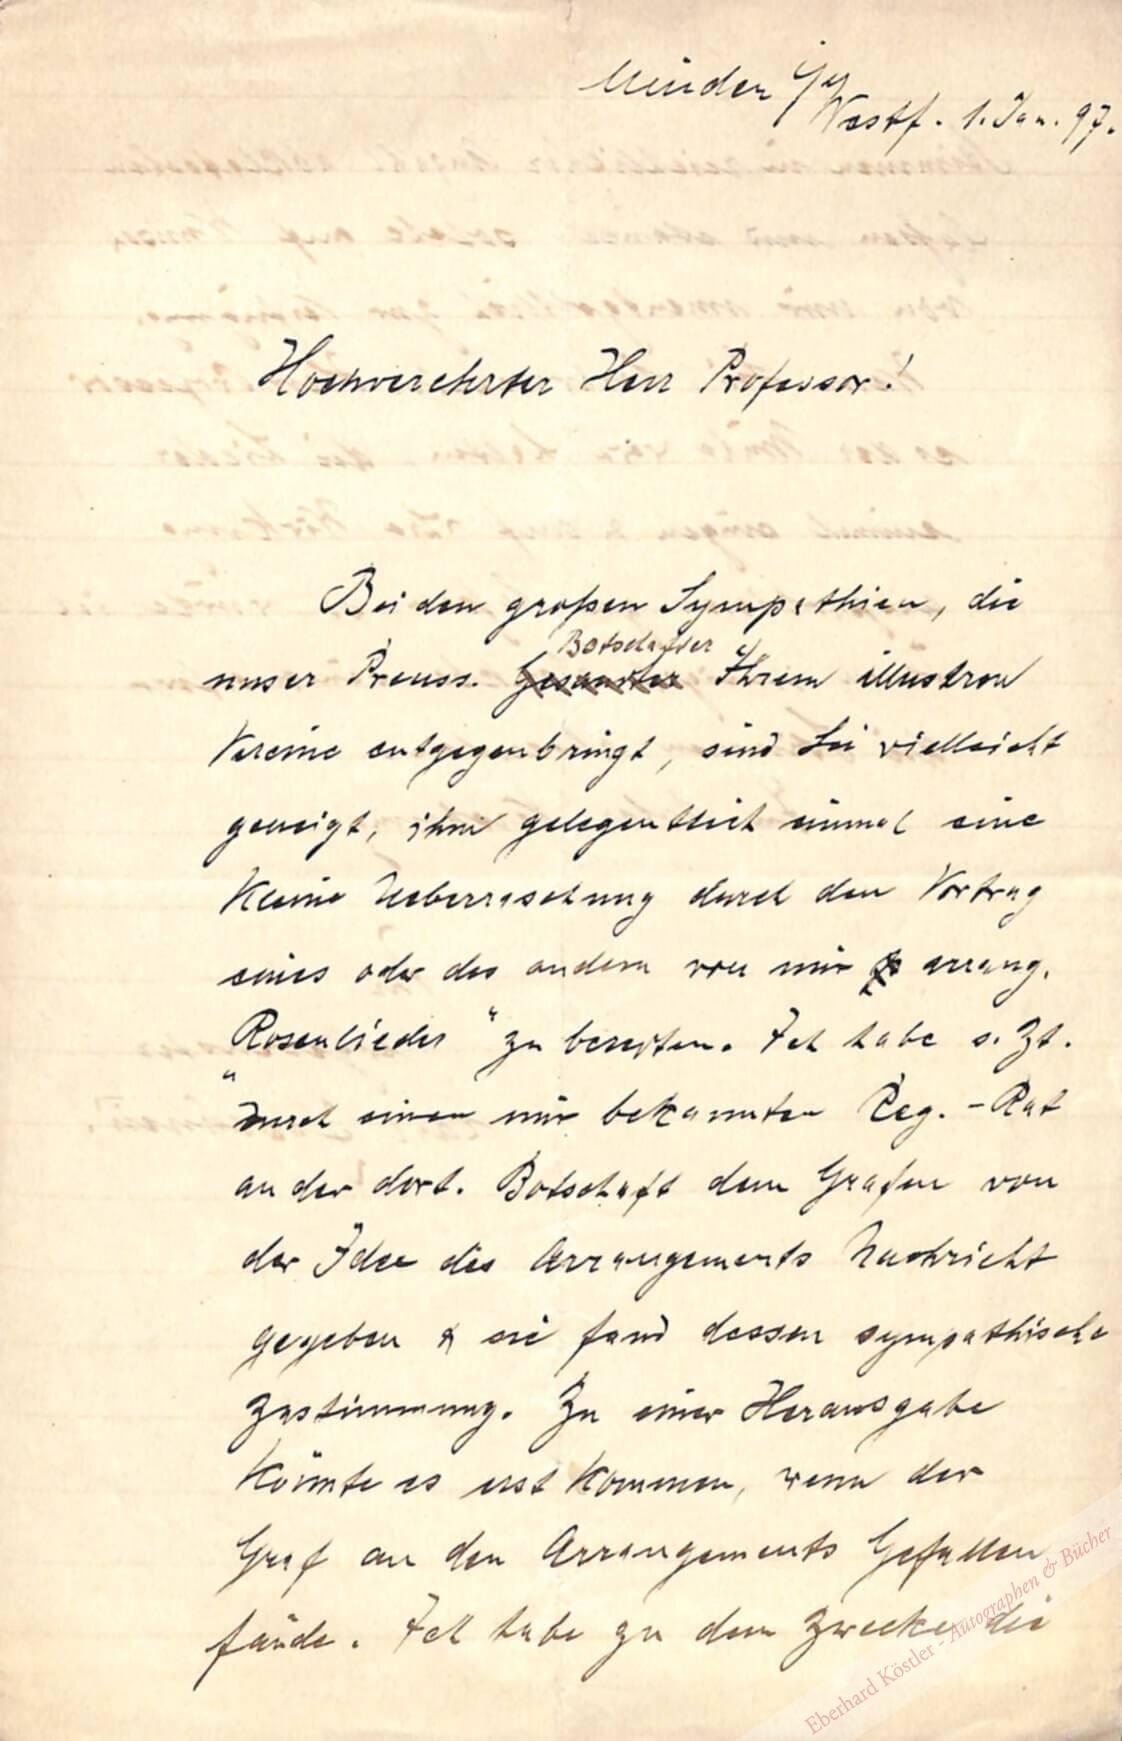 Minden i/
Westf. 1. Jan. 97.
Hochverehrter Herr Professor!
Bei den großen Sympathien, die
Botschafter
unser Preuss. Gesandter Ihrem illustren
Vereine entgegenbringt, sind Sie vielleicht
geneigt, ihm gelegentlich einmal eine
kleine Ueberraschung durch den Vortrag
eines oder des andern von mir arrang.
"Rosenlieder" zu bereiten. Ich habe s. Zt.
durch einen mir bekannten Reg.-Rat
an der dort. Botschaft dem Grafen von
der Idee des Arrangements Nachricht
gegeben & sie fand dessen sympathische
Zustimmung. Zu einer Herausgabe
könnte es erst kommen, wenn der
Graf an den Arrangements Gefallen
fände. Ich habe zu dem Zwecke die
Eberhard Köstler - Autographen & Bücher